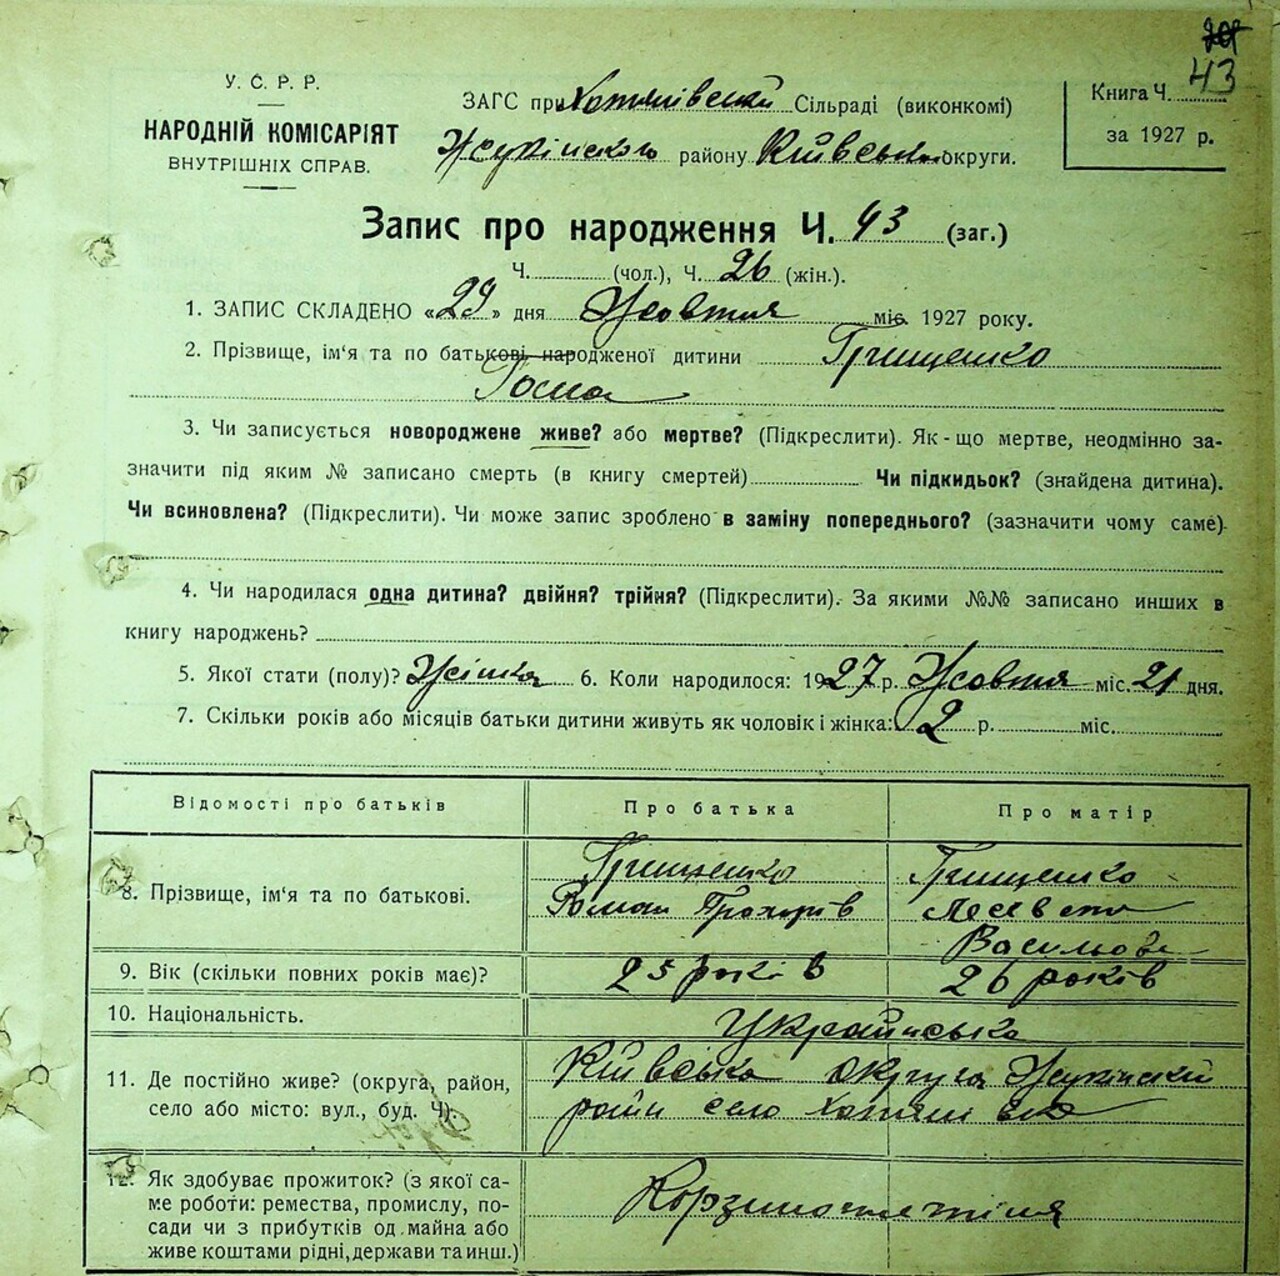 43
У. С. Р. Р.
НАРОДНІЙ КОМІСАРІЯТ
ВНУТРІШНІХ СПРАВ.
ЗАГС при Хотянівській Сільраді (виконкомі)
Жукінського району Київської округи.
Книга Ч.
за 1927 р.
Запис про народження Ч. 43 (заг.)
Ч. (чол.), Ч. 26 (жін.).
1. ЗАПИС СКЛАДЕНО «29» дня Жовтня міс. 1927 року.
2. Прізвище, ім'я та по батькові народженої дитини Грищенко
3. Чи записується новороджене живе? або мертве? (Підкреслити). Як-що мертве, неодмінно за-
значити під яким № записано смерть (в книгу смертей) Чи підкидьок? (знайдена дитина).
Чи всиновлена? (Підкреслити). Чи може запис зроблено в заміну попереднього? (зазначити чому саме)
4. Чи народилася одна дитина? двійня? трійня? (Підкреслити). За якими №№ записано инших в
книгу народжень?
5. Якої стати (полу)? Жінка 6. Коли народилося: 1927 р. Жовтня міс. 21 дня.
7. Скільки років або місяців батьки дитини живуть як чоловік і жінка: 2 р. міс.
Відомості про батьків Про батька Про матір
8. Прізвище, ім'я та по батькові. Грищенко Грищенко
Роман Прохорів
Васильова
9. Вік (скільки повних років має)? 25 років 26 років
10. Національність. Українська
11. Де постійно живе? (округа, район, Київська округа Жукінський
село або місто: вул., буд. Ч). район село Хотянівка
12. Як здобуває прожиток? (з якої са-
ме роботи: ремества, промислу, по-
сади чи з прибутків од майна або
живе коштами рідні, держави та инш.)